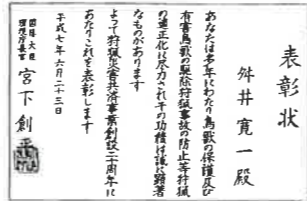 表彰状
舛井寛一殿
あなたは多年にわたり鳥獣の保護及び
有害鳥獣の駆除狩猟事故の防止等狩猟
の適正化に尽力されその功績は誠に顕著
なものがあります
よって狩猟災害共済事業創設二十周年に
あたりこれを表彰します
平成七年六月二十三日
国務大臣
環境庁長官 宮下創平